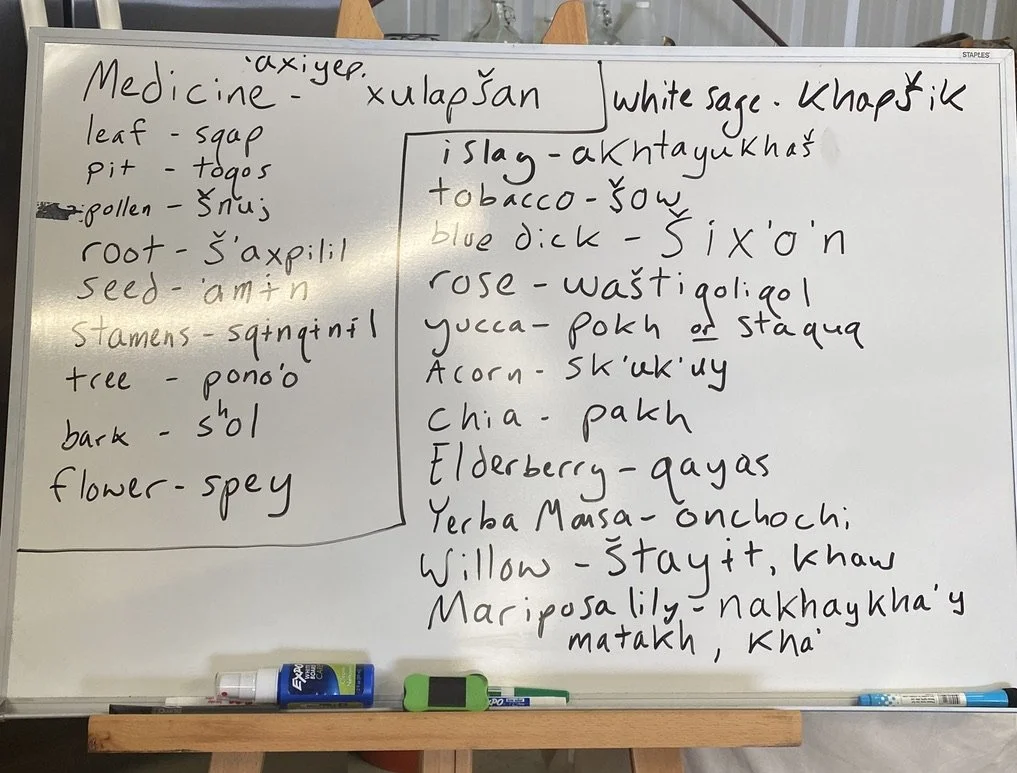 STAPLES
'axiyep.
Medicine - xulapšan
leaf - sqap
pit - toqos
pollen - šnuj
root - š'axpilil
seed - 'amɨn
stamens - sqɨnqɨnɨl
tree - pono'o
bark - sʰol
flower - spey
white sage. Khapšik
islay - akhtayukhaš
tobacco - šow
blue dick - šix'o'n
rose - waštiqoliqol
yucca - pokh or staquq
Acorn - sk'uk'uy
Chia - pakh
Elderberry - qayas
Yerba Mansa - onchochi
Willow - štayɨt, khaw
Mariposa lily - nakhaykha'y
matakh, kha'
EXPO